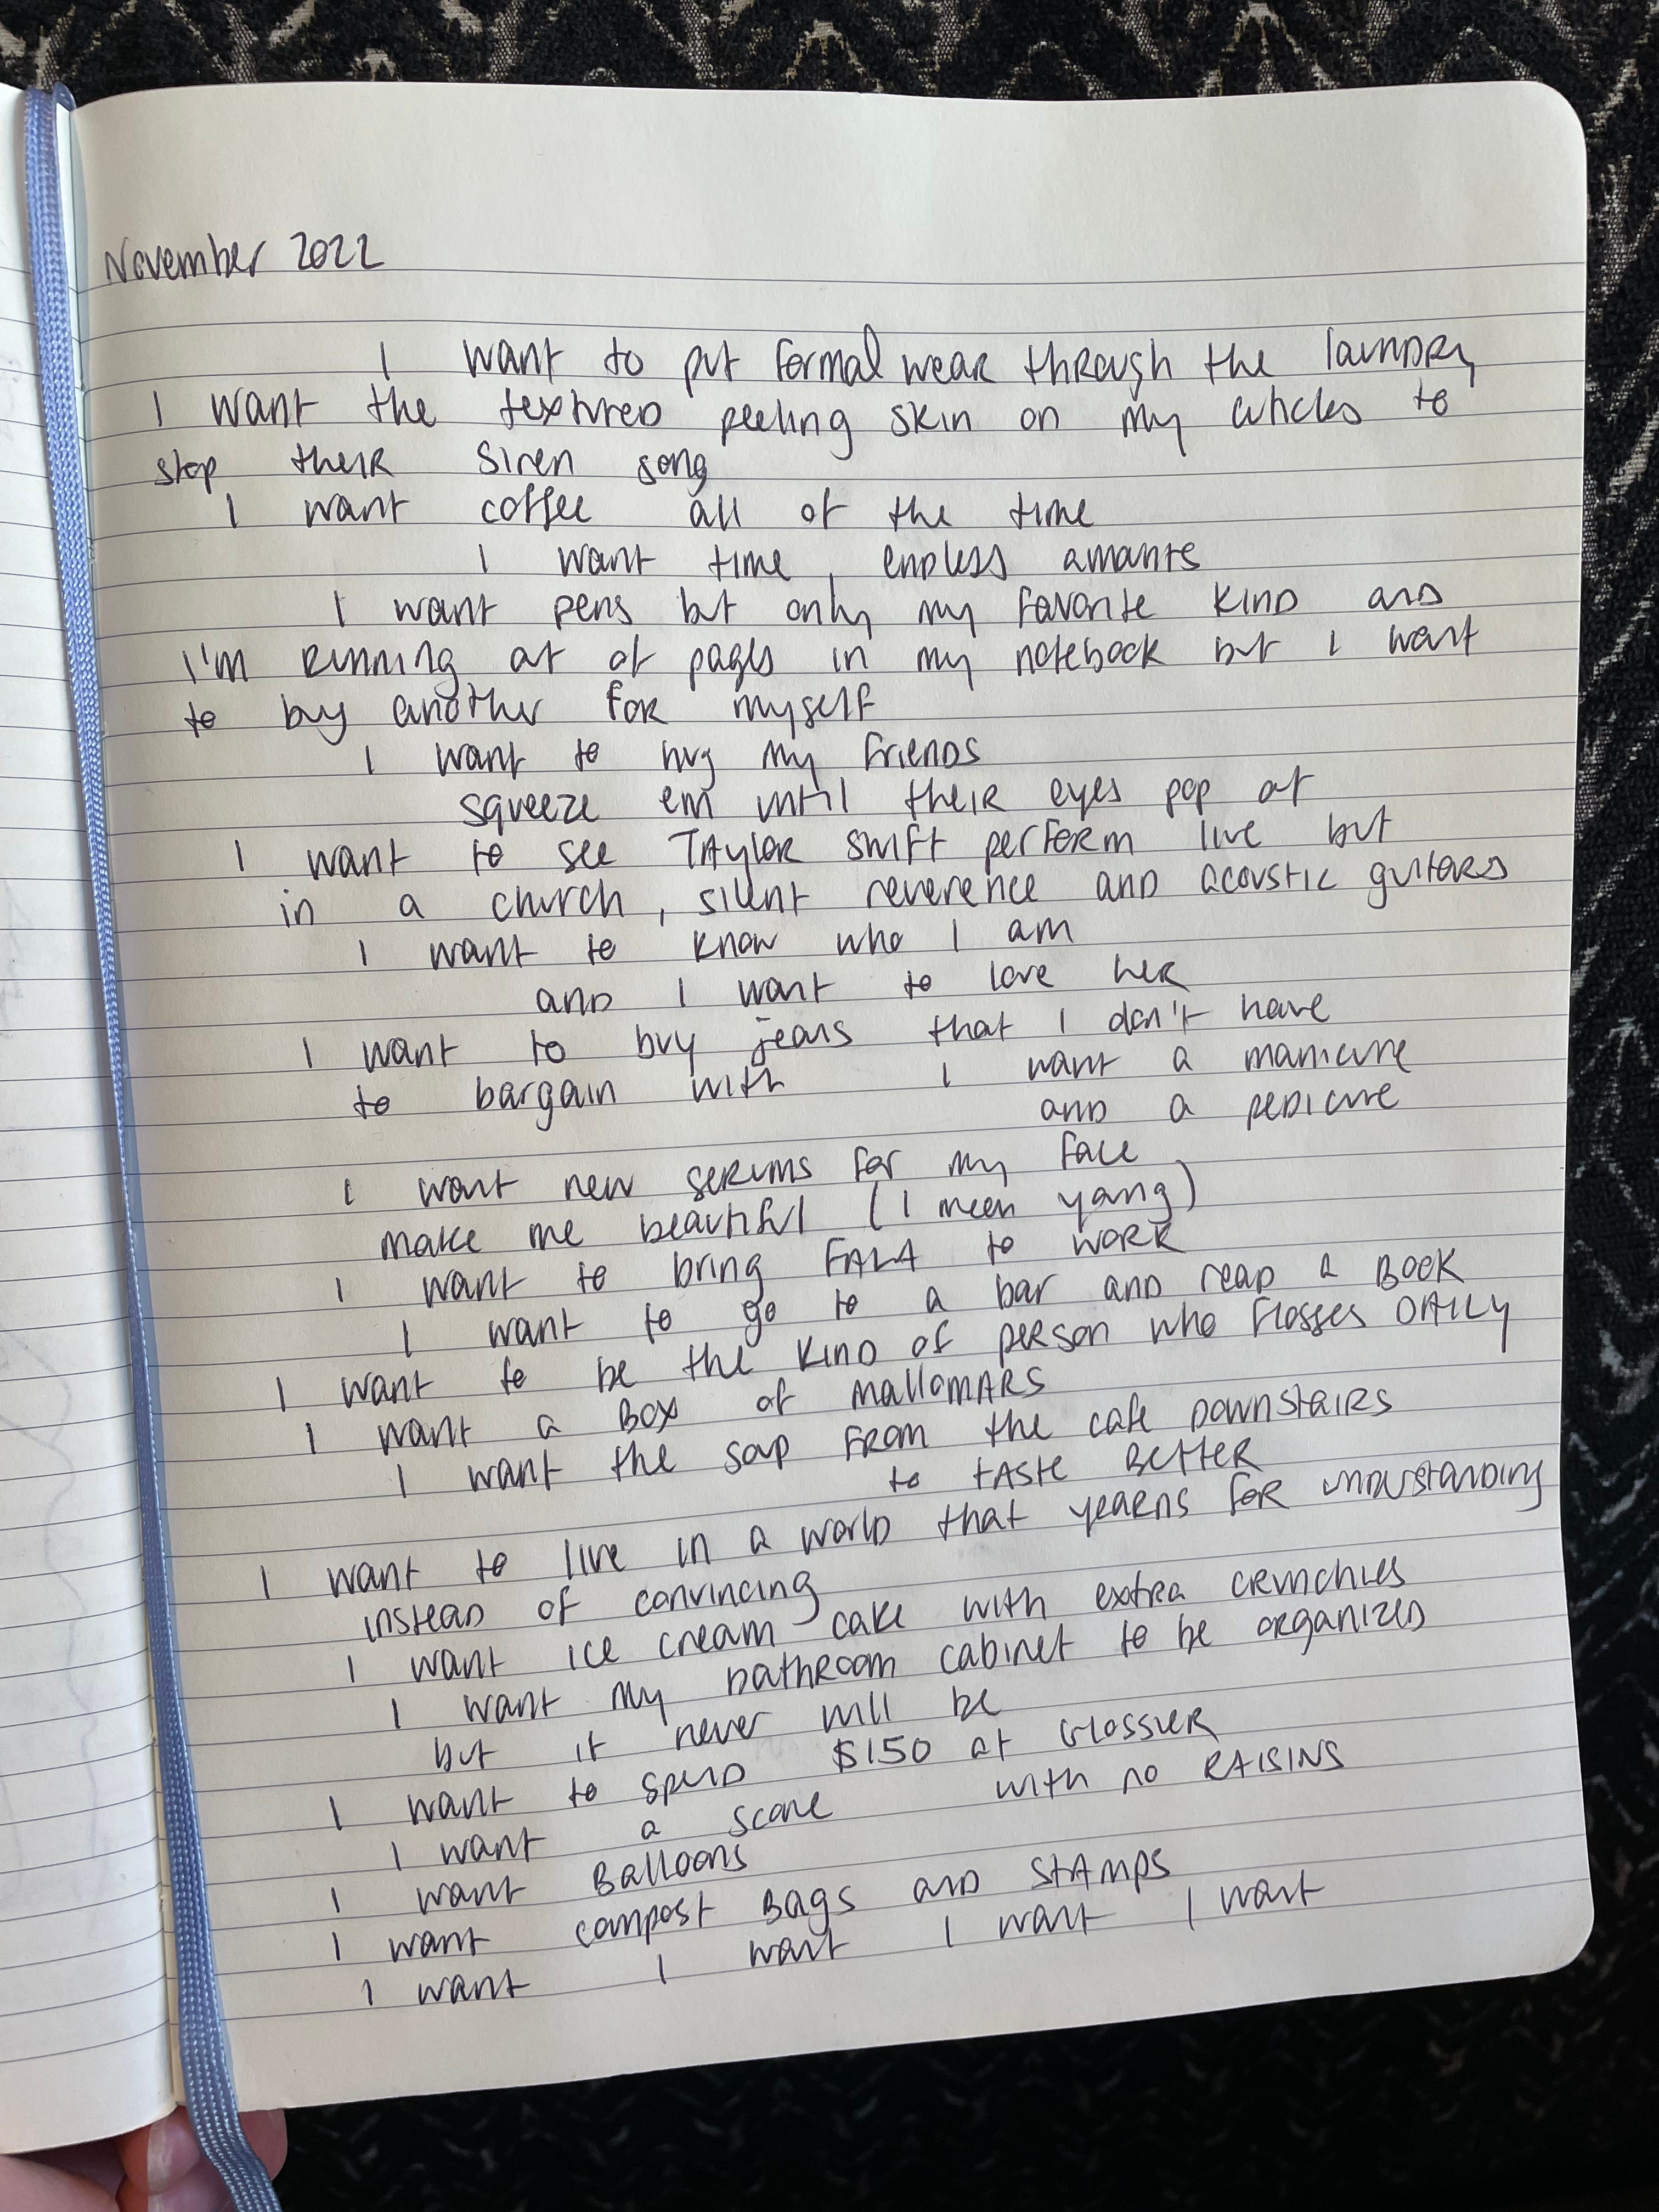 November 2022
I want to put formal wear through the laundry
I want the textured peeling skin on my cuticles to
stop their siren song
I want coffee all of the time
I want time, endless amounts
I want pens but only my favorite kind and
I'm running out of pages in my notebook but I want
to buy another for myself
I want to hug my friends
squeeze em until their eyes pop out
I want to see Taylor Swift perform live but
in a church, silent reverence and acoustic guitars
I want to know who I am
and I want to love her
I want to buy jeans that I don't have
to bargain with I want a manicure
and a pedicure
I want new serums for my face
make me beautiful (I mean young)
I want to bring FALA to work
I want to go to a bar and read a Book
I want to be the kind of person who flosses DAILY
I want a Box of mallomars
I want the soup from the cafe downstairs
to taste better
I want to live in a world that yearns for understanding
instead of convincing
I want ice cream cake with extra crunchies
I want my bathroom cabinet to be organized
but it never will be
I want to spend $150 at Glossier
I want a scone with no RAISINS
I want Balloons
I want compost Bags and stamps
I want I want I want I want